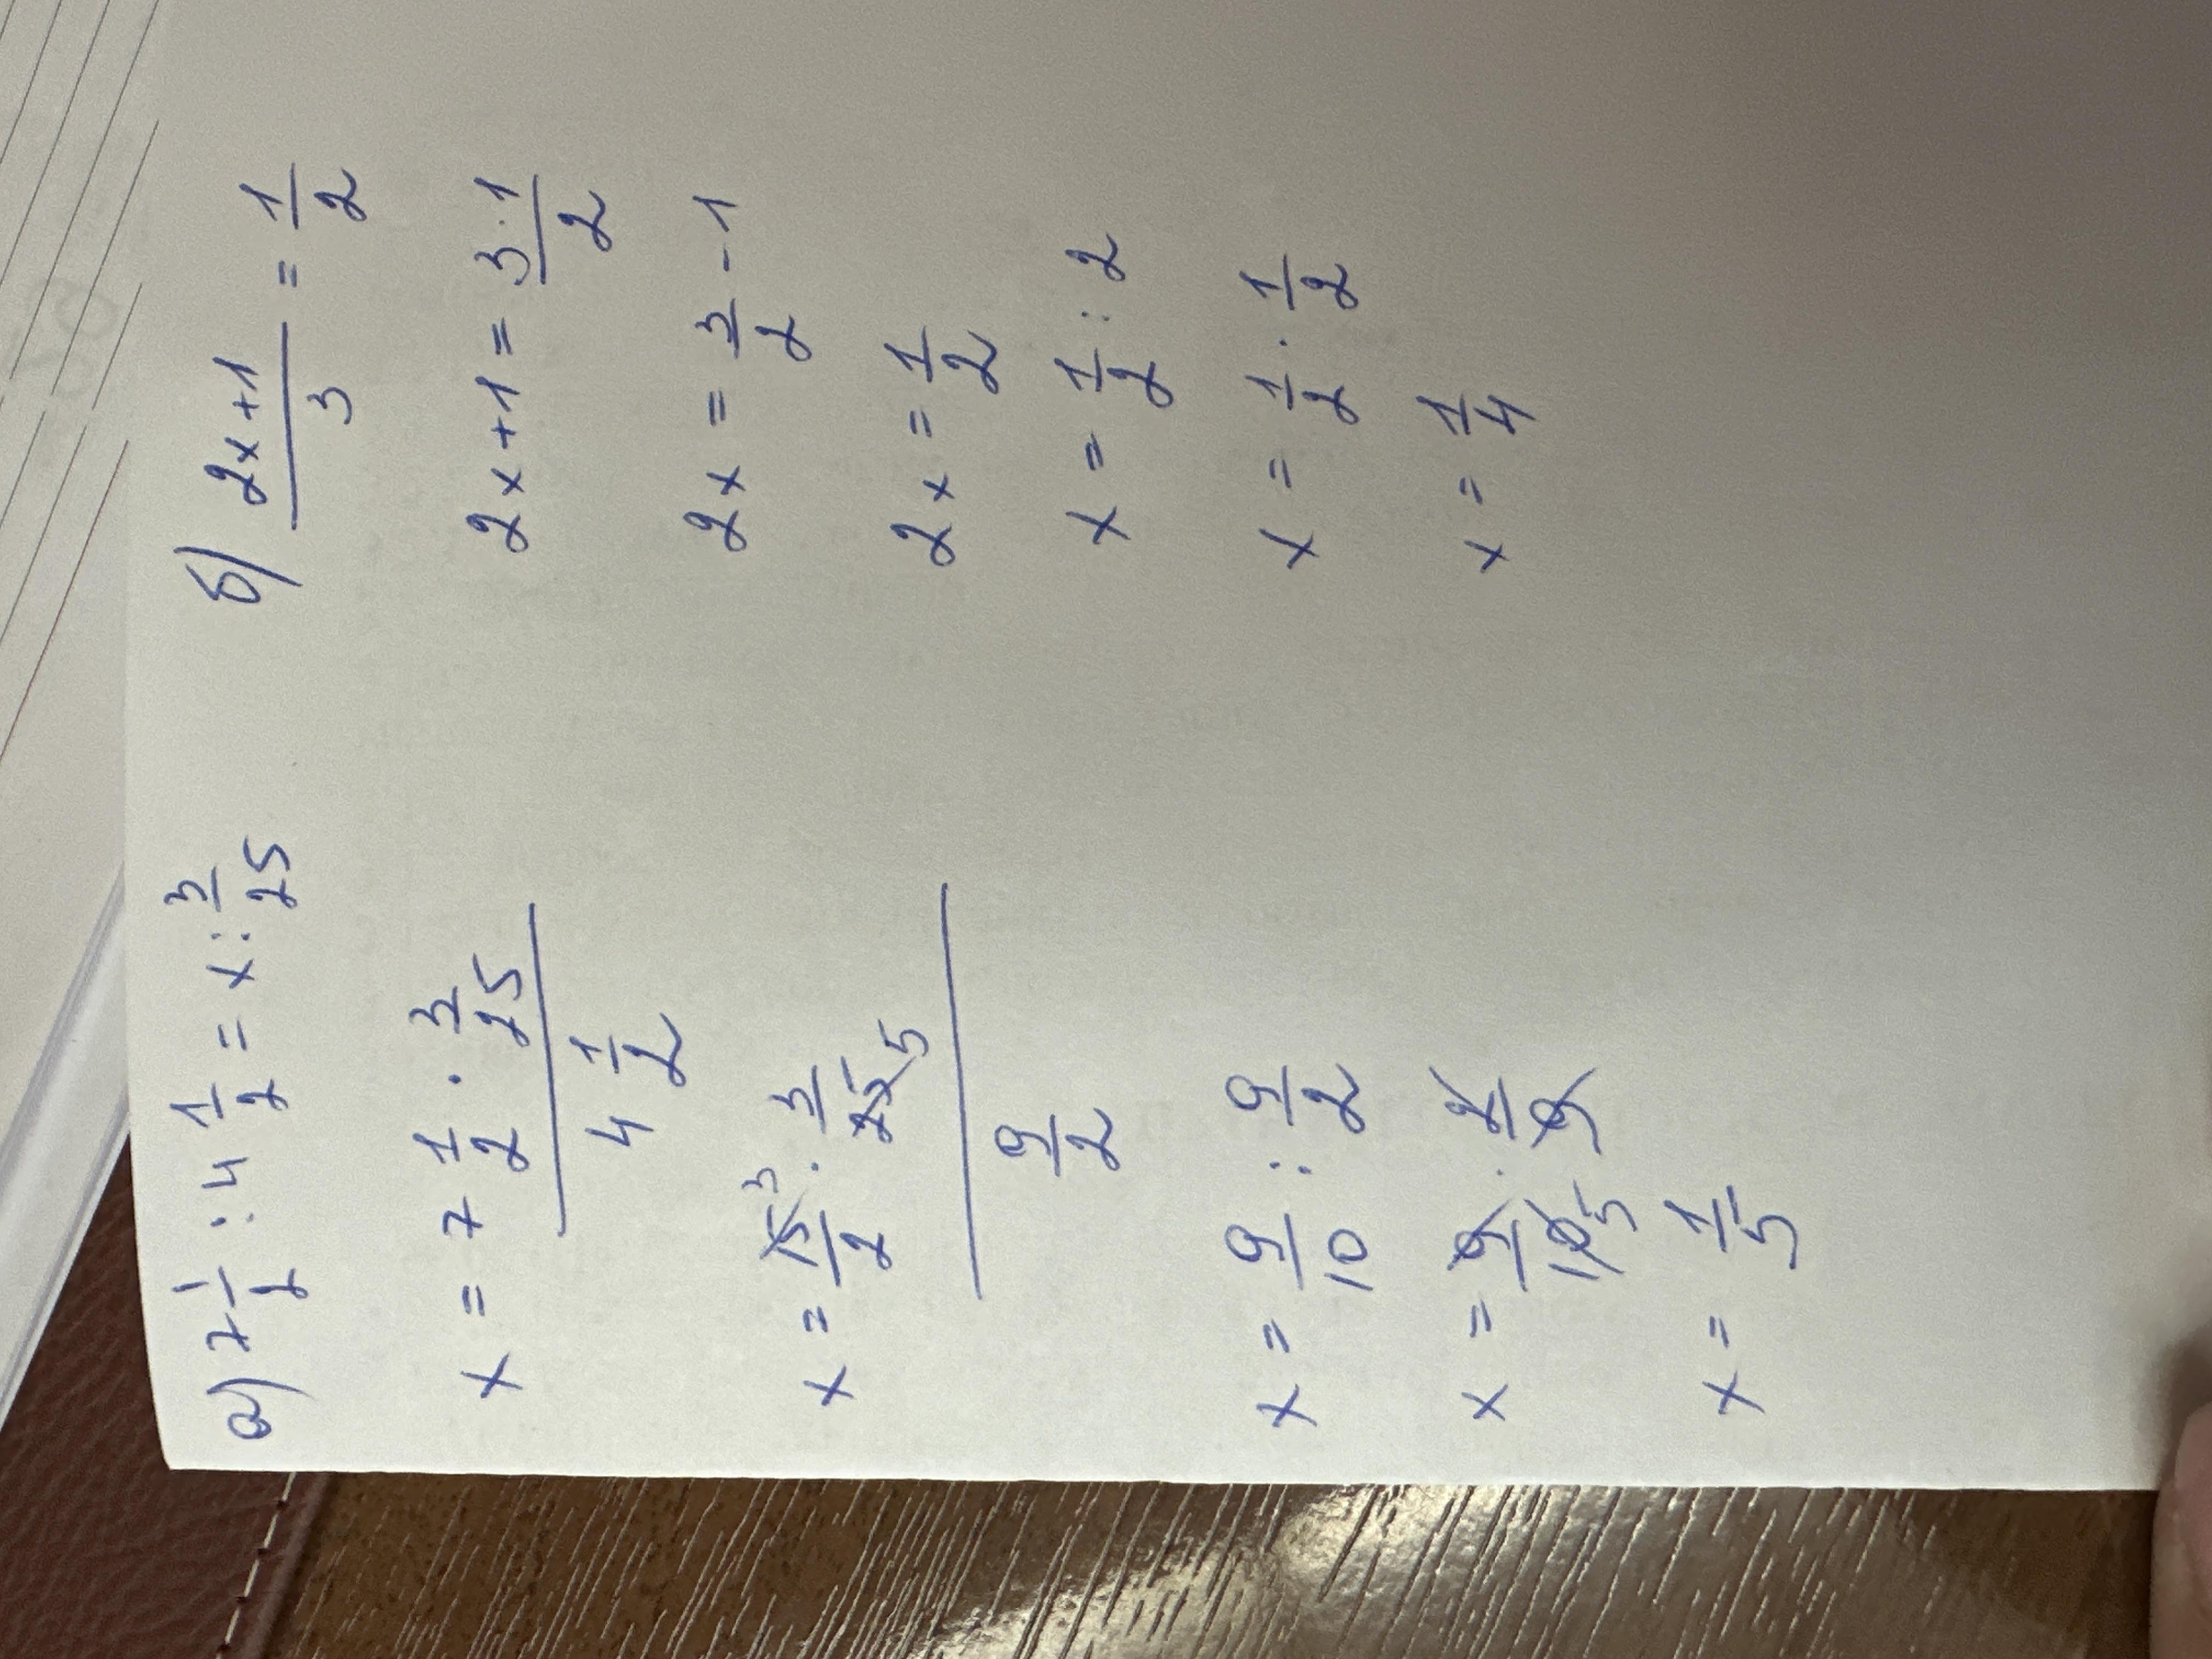 а) 7 1/2 : 4 1/2 = x : 3/25
x = (7 1/2 · 3/25) / (4 1/2)
x = (15/2 · 3/25) / (9/2) 3 5
x = 9/10 : 9/2
x = 9/10 · 2/9 5
x = 1/5
б) (2x+1)/3 = 1/2
2x+1 = (3·1)/2
2x = 3/2 - 1
2x = 1/2
x = 1/2 : 2
x = 1/2 · 1/2
x = 1/4